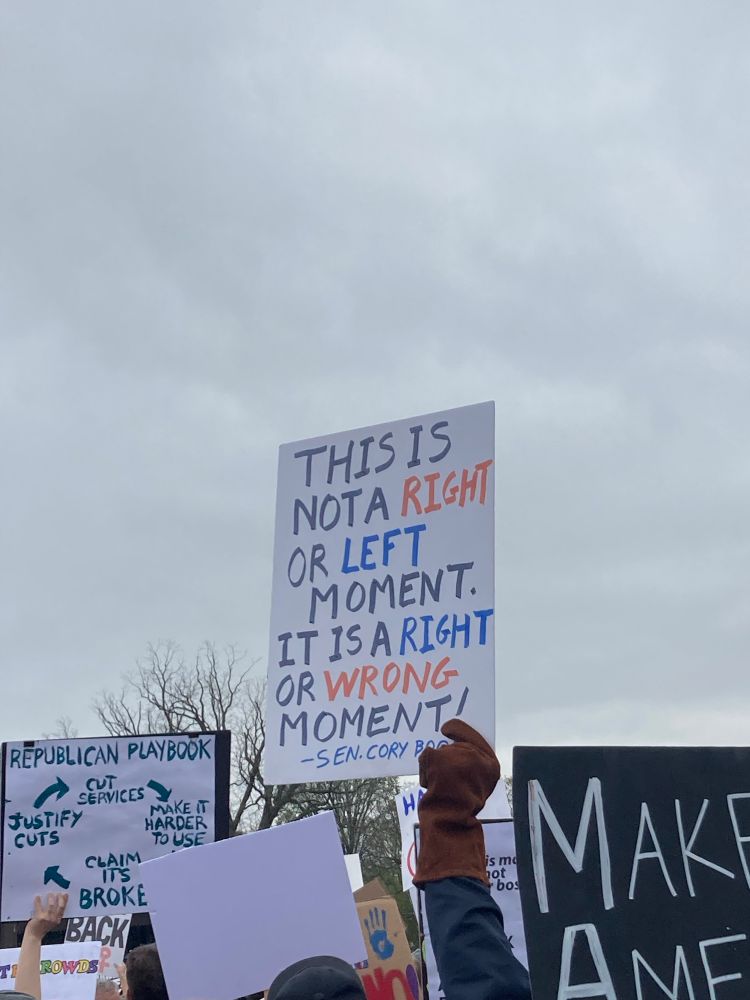 THIS IS
NOT A RIGHT
OR LEFT
MOMENT.
IT IS A RIGHT
OR WRONG
MOMENT!
-SEN. CORY
REPUBLICAN PLAYBOOK
CUT
SERVICES
MAKE IT
HARDER
TO USE
CLAIM
IT'S
JUSTIFY
CUTS
BACK
MAKE